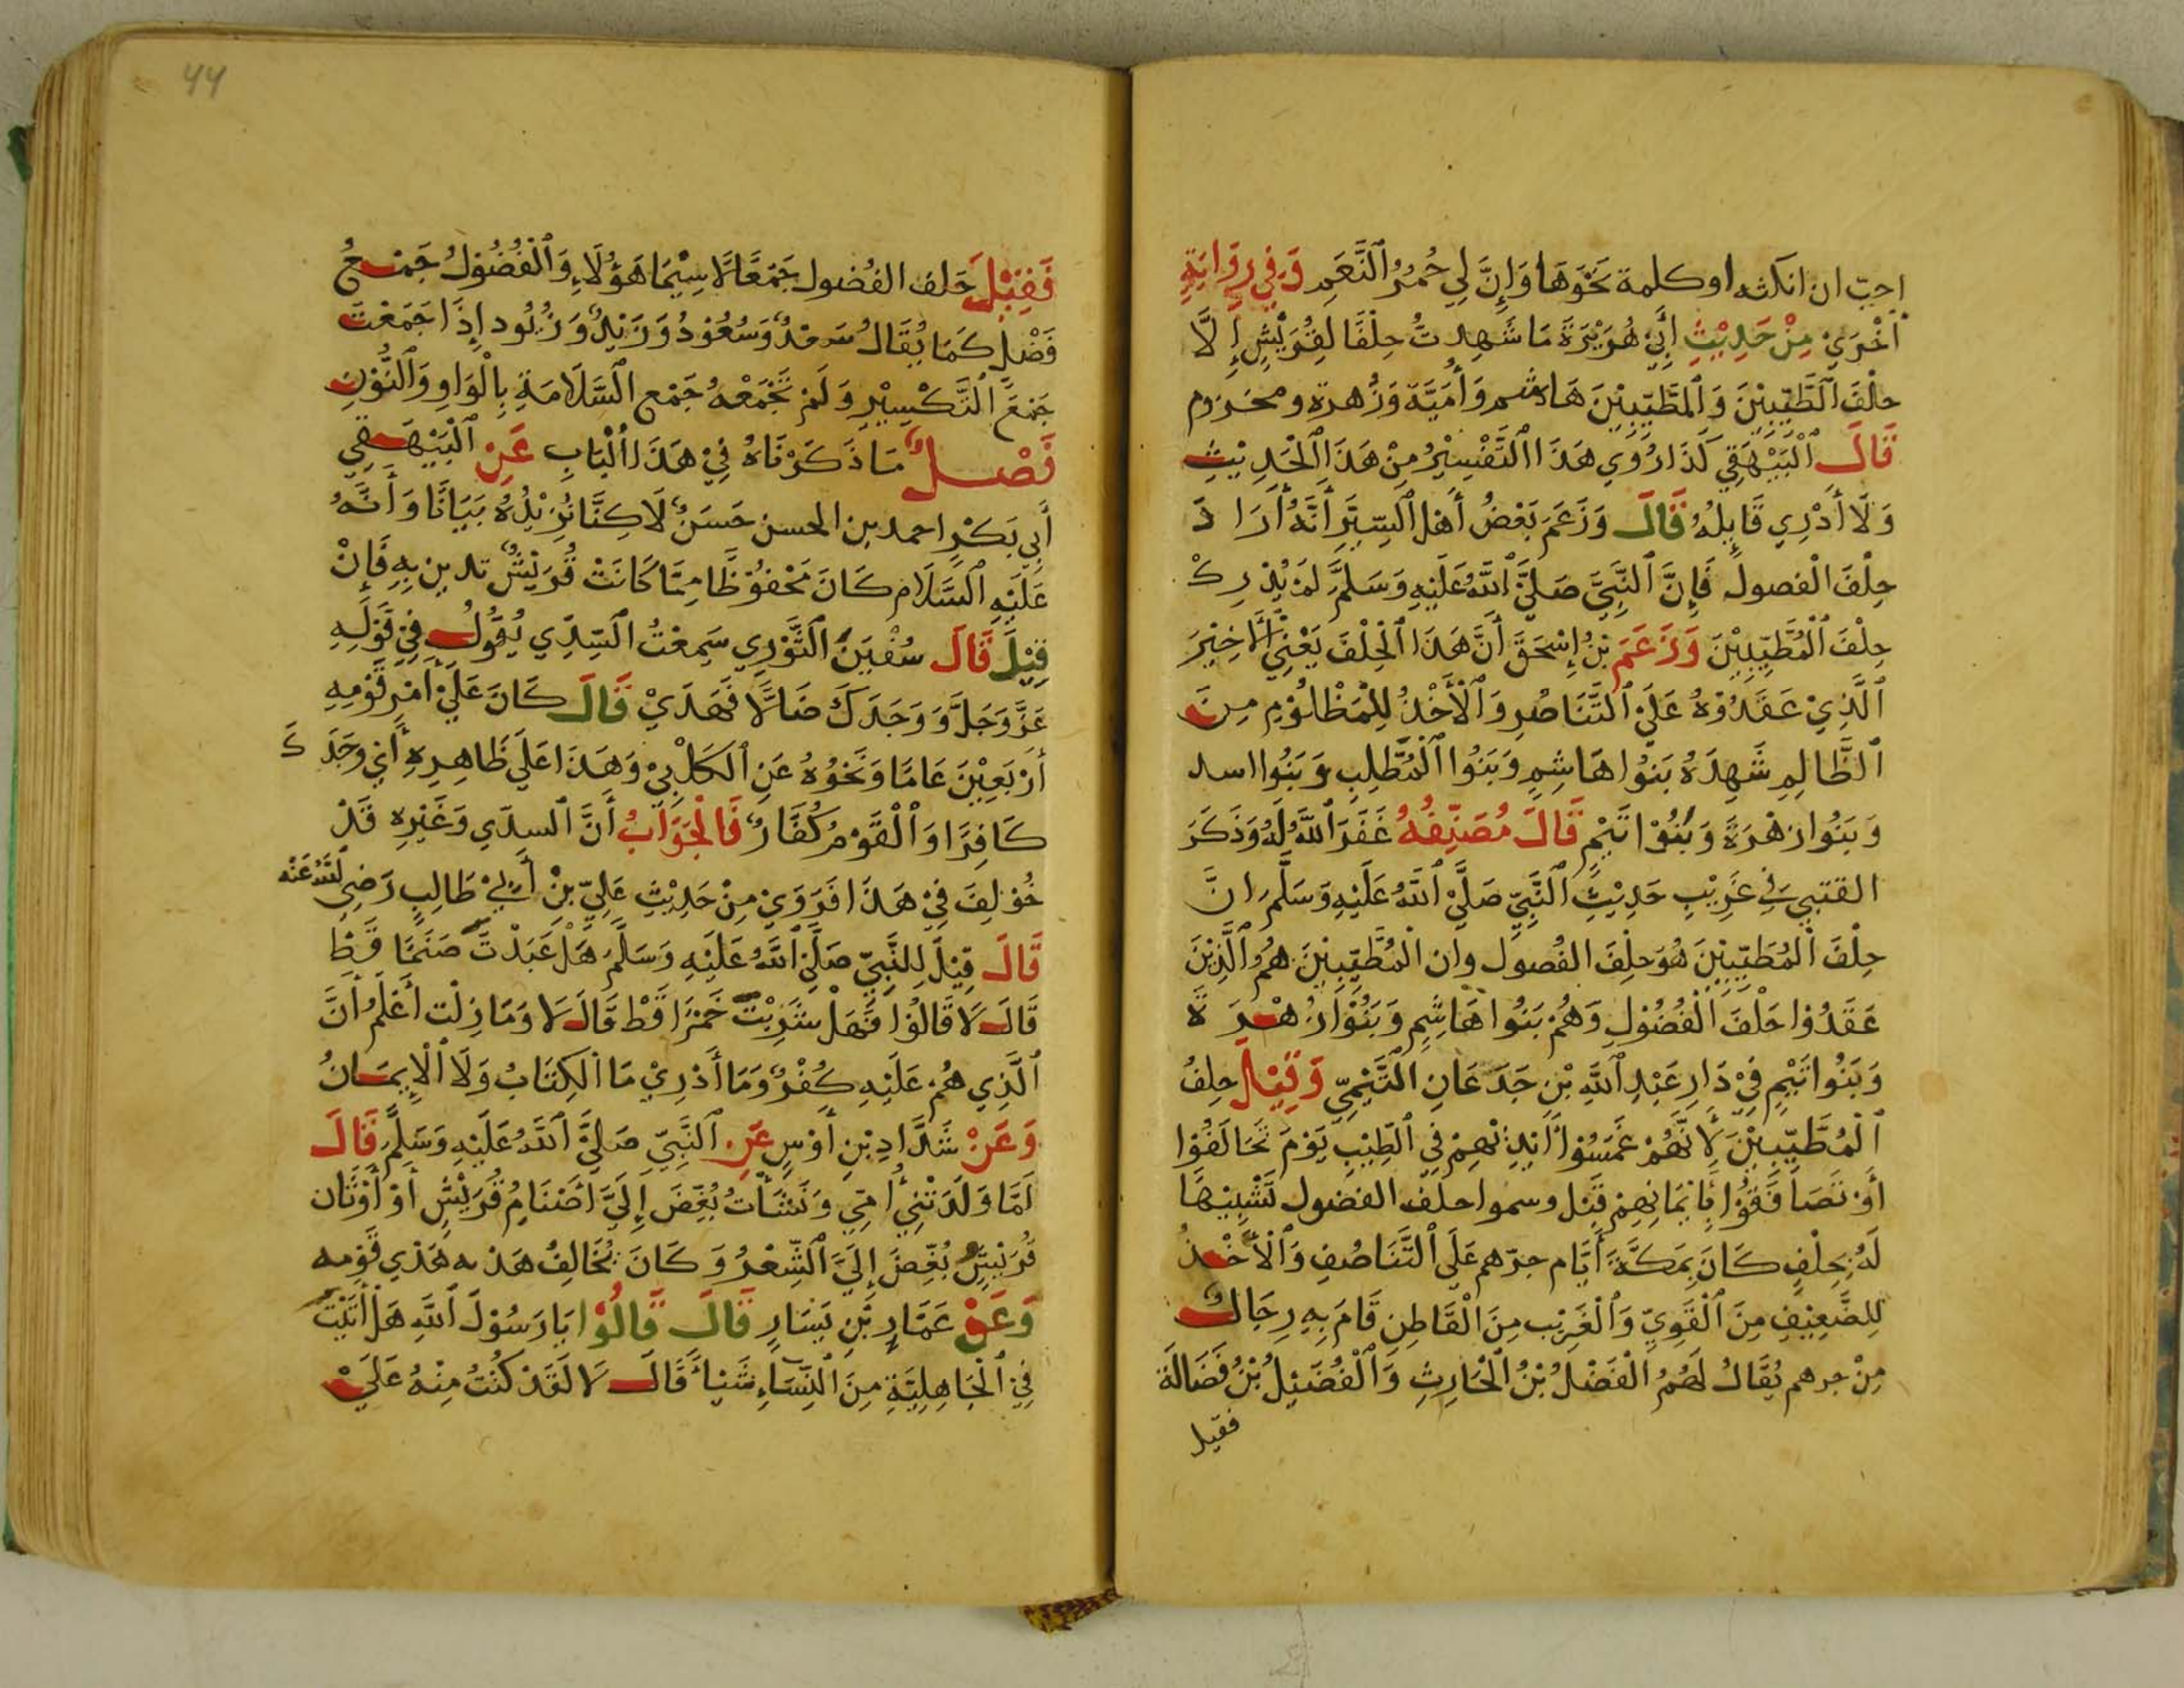 احِبّ ان انكثه او كلمة نَحْوَهَا وَإِنَّ لِي حُمُرُ ٱلنَّعَمِ وَفِي رِوَايَةٍ
أُخْرَي مِنْ حَدِيْثِ أَبِي هُرَيْرَةَ مَا شَهِدتُّ حِلْفًا لِقُرَيْشٍ إِلَّا
حلْفَ ٱلْطَّيِّبِيْنَ وَٱلمطَّيِّبِيْنَ هَاشم وَأُمَيَّةَ وَزُهرة ومخزوم
قَالَ ٱلْبَيْهَقِي كَذَا رُوِي هَذَا ٱلتَّفْسِيْرُ مِنْ هَذَا ٱلْحَدِيْثِ
وَلَا أَدْرِي قَايِلُهُ قَالَ وَزَعَمَ بَعْضُ أَهْلِ ٱلسِّيَرِ أَنَّهُ أَرَادَ
حِلْفَ الْفصول فَإِنَّ ٱلنَّبِيَّ صَلَّيَ ٱللَّهُ عَلَيْهِ وَسَلَّمَ لَمْ يُدْرِكْ
حِلْفَ ٱلْمُطَّيِّبِيْنَ وَزَعَمَ بْنُ إِسْحَقَ أَنَّ هَذَا ٱلْحِلْفَ يَعْنِي ٱلْأَخِيْرَ
ٱلَّذِيْ عَقَدُوْهُ عَلَيَ ٱلتَّنَاصُرِ وَٱلْأَخْذُ لِلْمَظْلُوْمِ مِنَ
ٱلظَّالِمِ شَهِدَهُ بَنُوا هَاشِمٍ وَبَنُوا ٱلْمُطَّلِبِ وَبَنُوا اسد
وَبَنُوا زهْرَةَ وَبَنُوْا تَيْمٍ قَالَ مُصَنِّفُهُ غَفَرَ ٱللَّهُ لَهُ وَذَكَرَ
القتبي فِي غَرِيْبِ حَدِيْثِ ٱلنَّبِيِّ صَلَّيَ ٱللَّهُ عَلَيْهِ وَسَلَّمَ انَّ
حِلْفَ ٱلْمُطَيِّبِيْنَ هُوَ حِلْفَ الفُصول وان الْمُطَّيِّبِيْنَ هُمُ ٱلَّذِيْنَ
عَقَدُوْا حَلْفَ ٱلْفُضُوْلِ وَهُمْ بَنُوا هَاشِمٍ وَبَنُوْا زُهْرَةَ
وَبَنُوا تَيْمٍ فِيْ دَارِ عَبْدِ ٱللَّهِ بْنِ جَدَعَانِ ٱلْتَّيْمِيّ وَقِيْلَ حِلفُ
ٱلْمُطَّيِّبِيْنَ لِأَنَّهُمْ غَمَسُوْا أَيْدِيْهِمْ فِي ٱلطِّيْبِ يَوْمَ تَحَالَفُوْا
أَوْ تَصَافَقُوْا بِأَيْمَانِهِمْ قَبْل وسموا حلف الفضول تَشْبِيْهًا
لَهُ بِحِلْفٍ كَانَ بِمَكَّةَ أَيَّام جرْهم عَلَي ٱلتَّنَاصُفِ وَٱلْأَخْذُ
لِلضَّعِيْفِ مِنَ ٱلْقَوِيِّ وَٱلْغَرِيْب مِنَ ٱلْقَاطِنِ قَامَ بِهِ رِجَالٌ
مِنْ جرهم يُقَالُ لَهُمُ الْفَضْلُ بْنُ ٱلْحَارِثِ وَٱلْفُضَيْلُ بْنُ فَضَالَةَ
فقيل
44
فَقِيْلَ حَلف الفُضول جَمْعًا لَّاسِيْمَا هَؤُلَاءِ وَٱلْفُضُوْلُ جَمْعُ
فَضْلٍ كَمَا يُقَالُ سَعْدٌ وَسُعُوْدُ وَزَيْدٌ وَزُيُود إِذَا جَمَعْتَ
جَمْعَ ٱلتَّكْسِيْرِ وَلَمْ تَجْمَعْهُ جَمْع ٱلسَّلَامَةِ بِالْوَاوِ وَٱلنُّوْنِ
فَصْلٌ مَا ذَكَرْنَاهُ فِيْ هَذَا ٱلْبَابِ عَنِ ٱلْبَيْهَقِي
أَبِي بَكْرٍ احمد بن الحسن حَسَنٌ لَاكِنَّا نُزِيْدُهُ بَيَانًا وَأَنَّهُ
عَلَيْهِ ٱلسَّلَام كَانَ مَحْفُوْظًا مِمَّا كَانَتْ قُرَيْشٌ تدين بِهِ فَإِنْ
قِيْلَ قَالَ سُفْيَنُ ٱلثَّوْرِي سَمِعْتُ ٱلسّدِّي يُقُوْلُ فِيْ قَوْلِهِ
عَزَّ وَجَلَّ وَوَجَدَكَ ضَالًّا فَهَدَيْ قَالَ كَانَ عَلَيْ أَمْرِ قَوْمِهِ
أَرْبَعِيْنَ عَامًا وَنَحْوُهُ عَنِ ٱلْكَلْبِيْ وَهَذَا عَلَي ظَاهِرِهِ أَيْ وَجَدَكَ
كَافِرًا وَٱلْقَوْمُ كُفَّارٌ فَالْجَوَابُ أَنَّ ٱلسدّي وَغَيْرِهِ قَدْ
خُوْلِفَ فِيْ هَذَا فَرَوَيْ مِنْ حَدِيْثِ عَلِيِّ بْنِ أَبِيْ طَالِبٍ رَضِيَ ٱللَّهُ عَنْه
قَالَ قِيْلَ لِلنَّبِيِّ صَلَّيَ ٱللَّهُ عَلَيْهِ وَسَلَّمَ هَلْ عَبَدْتَ صَنَمًا قَطْ
قَالَ لَا قَالُوْا فَهَلْ شَرِبْتَ خَمْرًا قَطْ قَالَ لَا وَمَا زِلْت أَعْلَمُ أَنَّ
ٱلَّذِي هُمْ عَلَيْهِ كُفْرٌ وَمَا أَدْرِيْ مَا ٱلْكِتَابُ وَلَا ٱلْإِيمَانُ
وَعَنْ شَدَّادِ بْنِ أَوْسٍ عَنِ ٱلنَّبِيِّ صَلَّيَ ٱللَّهُ عَلَيْهِ وَسَلَّمَ قَالَ
لَمَّا وَلَدَتْنِي أُمِّي وَنَشَأْتُ بُغِّضَ إِلَيَّ أَصْنَامُ قُرَيْشٍ أَوْ أَوْثَان
قُرَيْشٍ بُغِّضَ إِلَيَّ ٱلشِّعْرُ وَكَانَ يُخَالِفُ هَدْيه هَدْي قَوْمِه
وَعَنْ عَمَّارِ بْنِ يَسَارٍ قَالَ قَالُوْا يَا رَسُوْلَ ٱللَّهِ هَلْ أَتَيْتَ
فِيْ ٱلْجَاهِلِيَّةِ مِنَ ٱلنِّسَاءِ شَيْأً قَالَ لَا لَقَدْ كُنْتُ مِنْهُ عَلَيْ